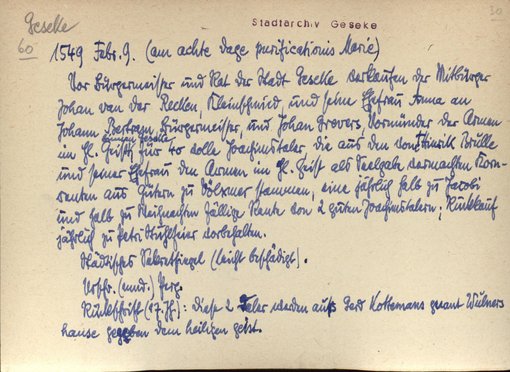 Geseke
60
Stadtarchiv Geseke
30
1549 Febr. 9. (am achte dage purificationis Marie)
Vor Bürgermeister und Rat der Stadt Geseke verkaufen der Mitbürger
Johan van der Recken, Kleinschmied, und seine Ehefrau Anna an
Johann Bertram, Bürgermeister, und Johan Grevers, Vormünder der Armen
im Hl. Geist, für 40 volle Joachimstaler, die aus den von Hinrik Brülle
und seiner Ehefrau den Armen im Hl. Geist als Seelgabe vermachten Korn-
renten aus Gütern zu stammen, eine jährlich halb zu Jacobi
und halb zu Weihnachten fällige Rente von 2 guten Joachimstalern; Rückkauf
jährlich zu Petri Stuhlfeier vorbehalten.
Städtisches Sekretsiegel (leicht beschädigt).
Urschr. (nnd.) Perg.
Rückschrift (17. Jh): Diese 2 Taler werden auß Kottemans genant Wulners
hause gegeben dem heiligen geist.